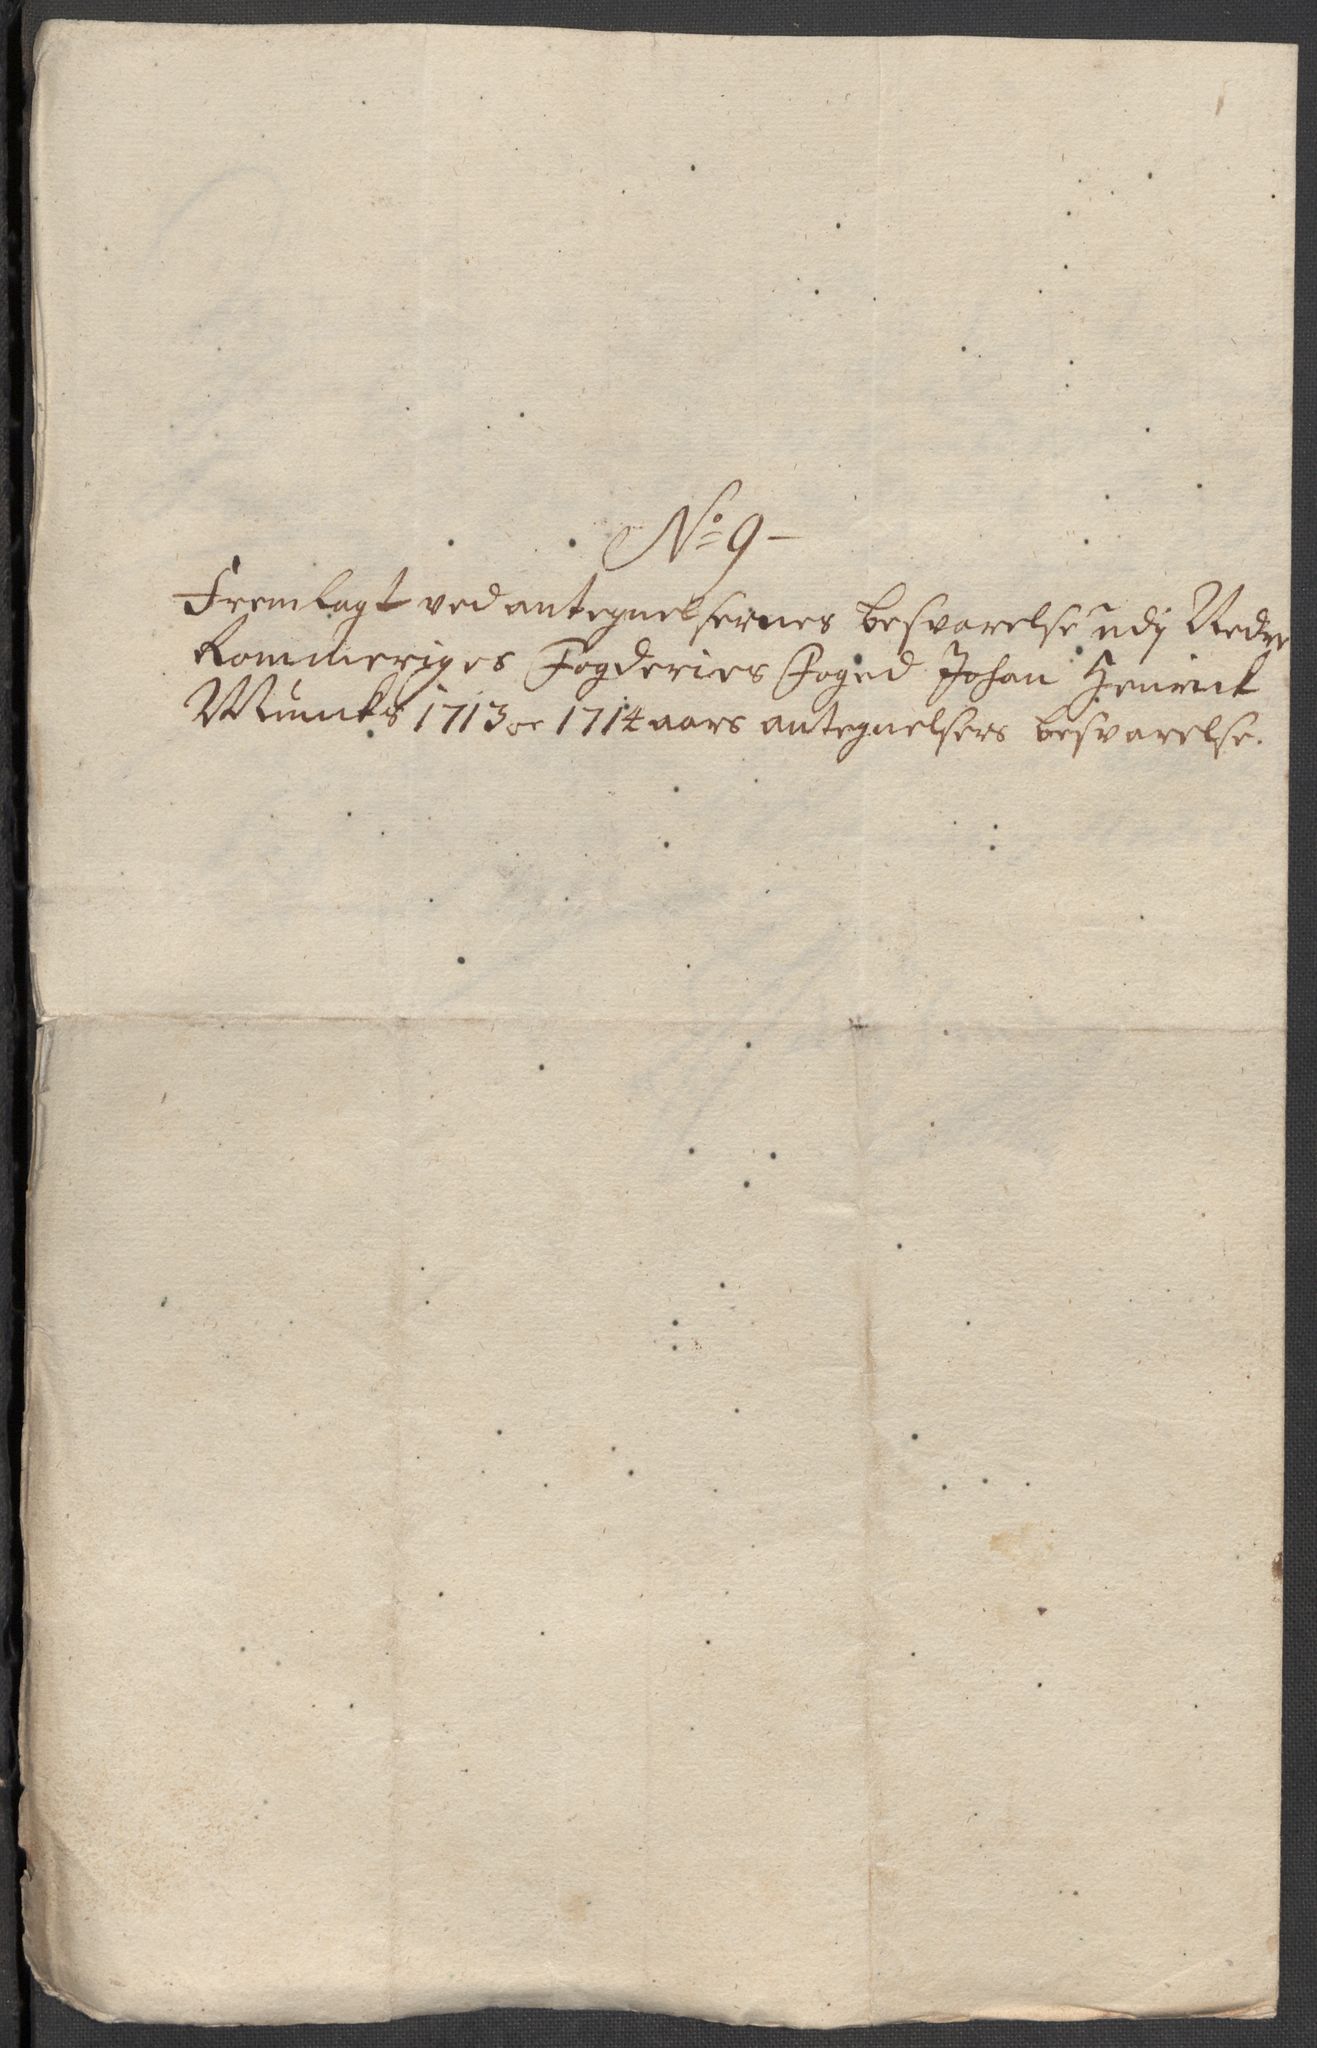 No 9 —
Fremlagt ved antegnelsernes besvarelse udj Nedre
Rommeriges Fogderies Foged Johan Henrick
Muncks 1713 oc 1714 aars antegnelsers besvarelse.